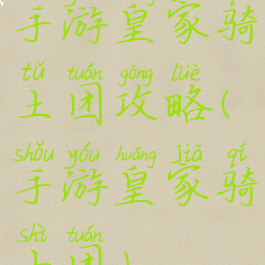 手游皇家骑
tǔ tuán gōng lüè
土团攻略(
shǒu yóu huáng jiā qí
手游皇家骑
shì tuán
士团)